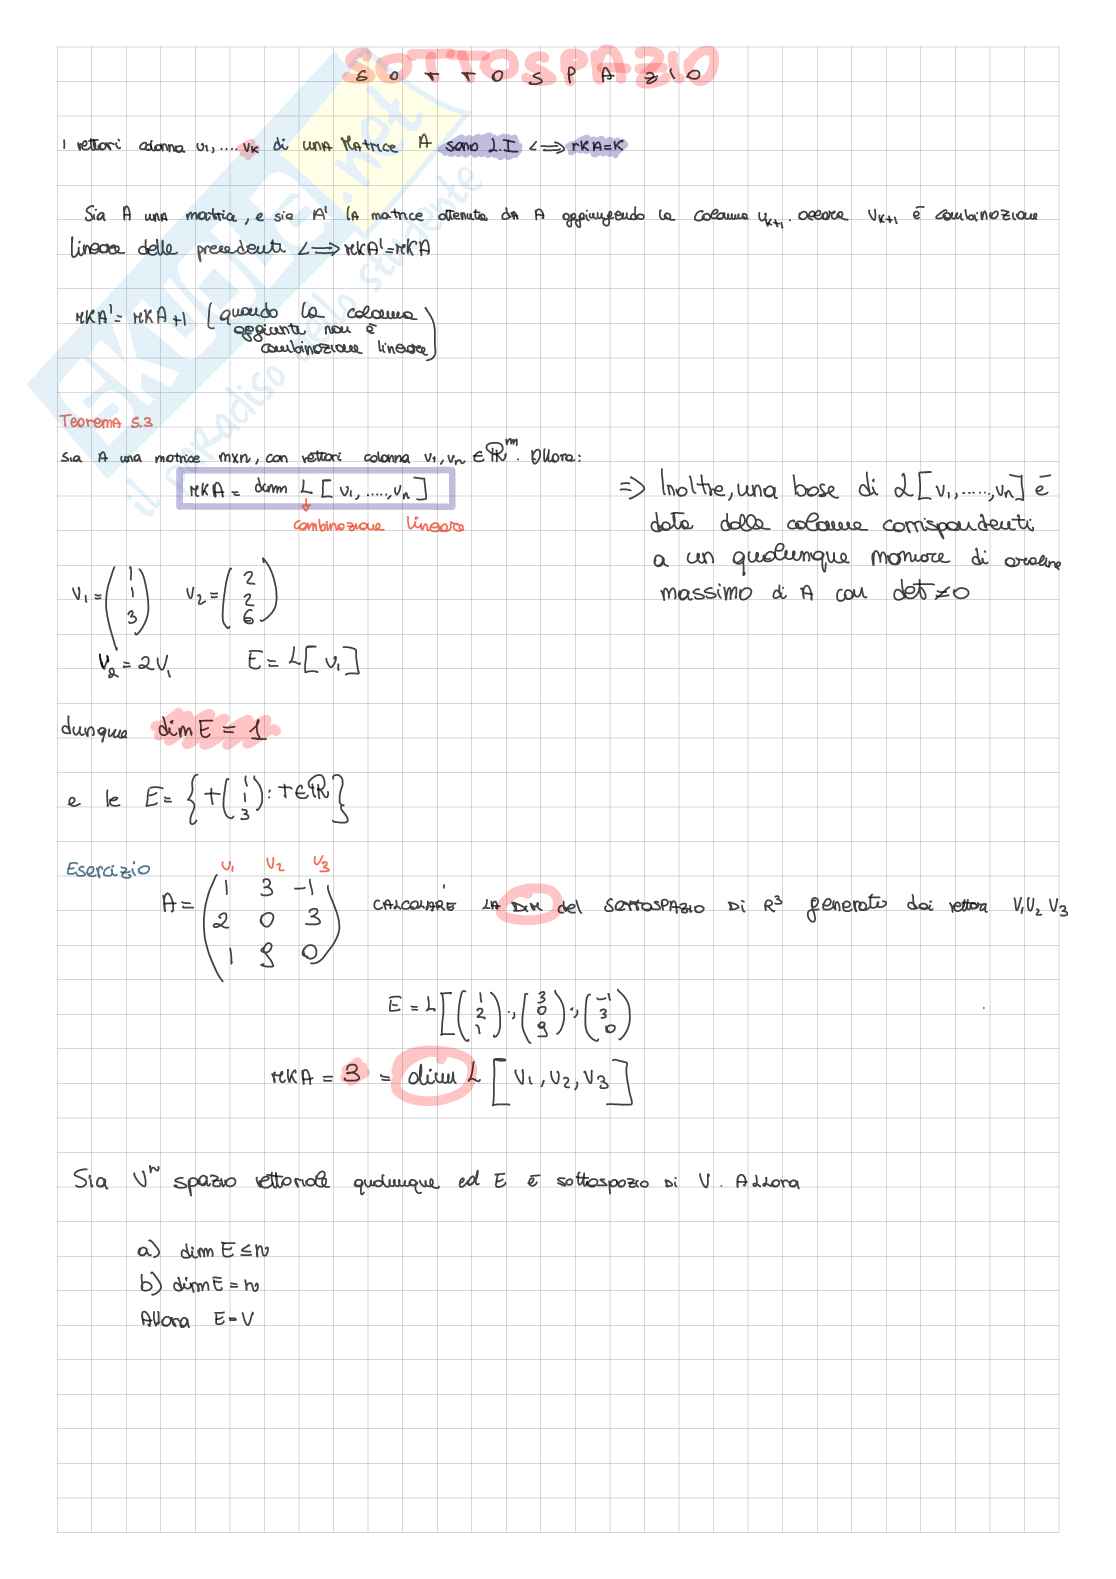 SOTTOSPAZIO
I vettori colonna v1,.... vK di una Matrice A sono L.I <=> rKA=K
Sia A una matria, e sia A' la matrice ottenuta da A aggiungendo la colonna vK+1. allora VK+1 è combinazione
lineare delle precedenti <=> rKA'=rKA
rKA' = rKA+1 (quando la colonna
aggiunta non è
combinazione lineare)
Teorema 5.3
sia A una matrice mxn, con vettori colonna v1, vn ∈ ℝ^m. Allora:
rKA = dim L [v1,.....,vn]
combinazione lineare
=> Inoltre, una base di L[v1,.....,vn] è
data dalle colonne corrispondenti
a un qualunque minore di ordine
massimo di A con det ≠ 0
V1 = (1 1 3) V2 = (2 2 6)
V2 = 2V1 E = L[v1]
dunque dim E = 1
e le E = {t(1 1 3) : t∈ℝ}
Esercizio
v1 v2 v3
A = (1 3 -1
2 0 3
1 9 0)
CALCOLARE LA DIM del SOTTOSPAZIO DI R³ generato dai vettori V1 V2 V3
E = L[(1 2 1), (3 0 9), (-1 3 0)
rKA = 3 = dim L [V1, V2, V3]
Sia V^n spazio vettoriale qualunque ed E è sottospazio di V. Allora
a) dim E ≤ n
b) dim E = n
Allora E = V
SKUOLA.net
il paradiso dello studente